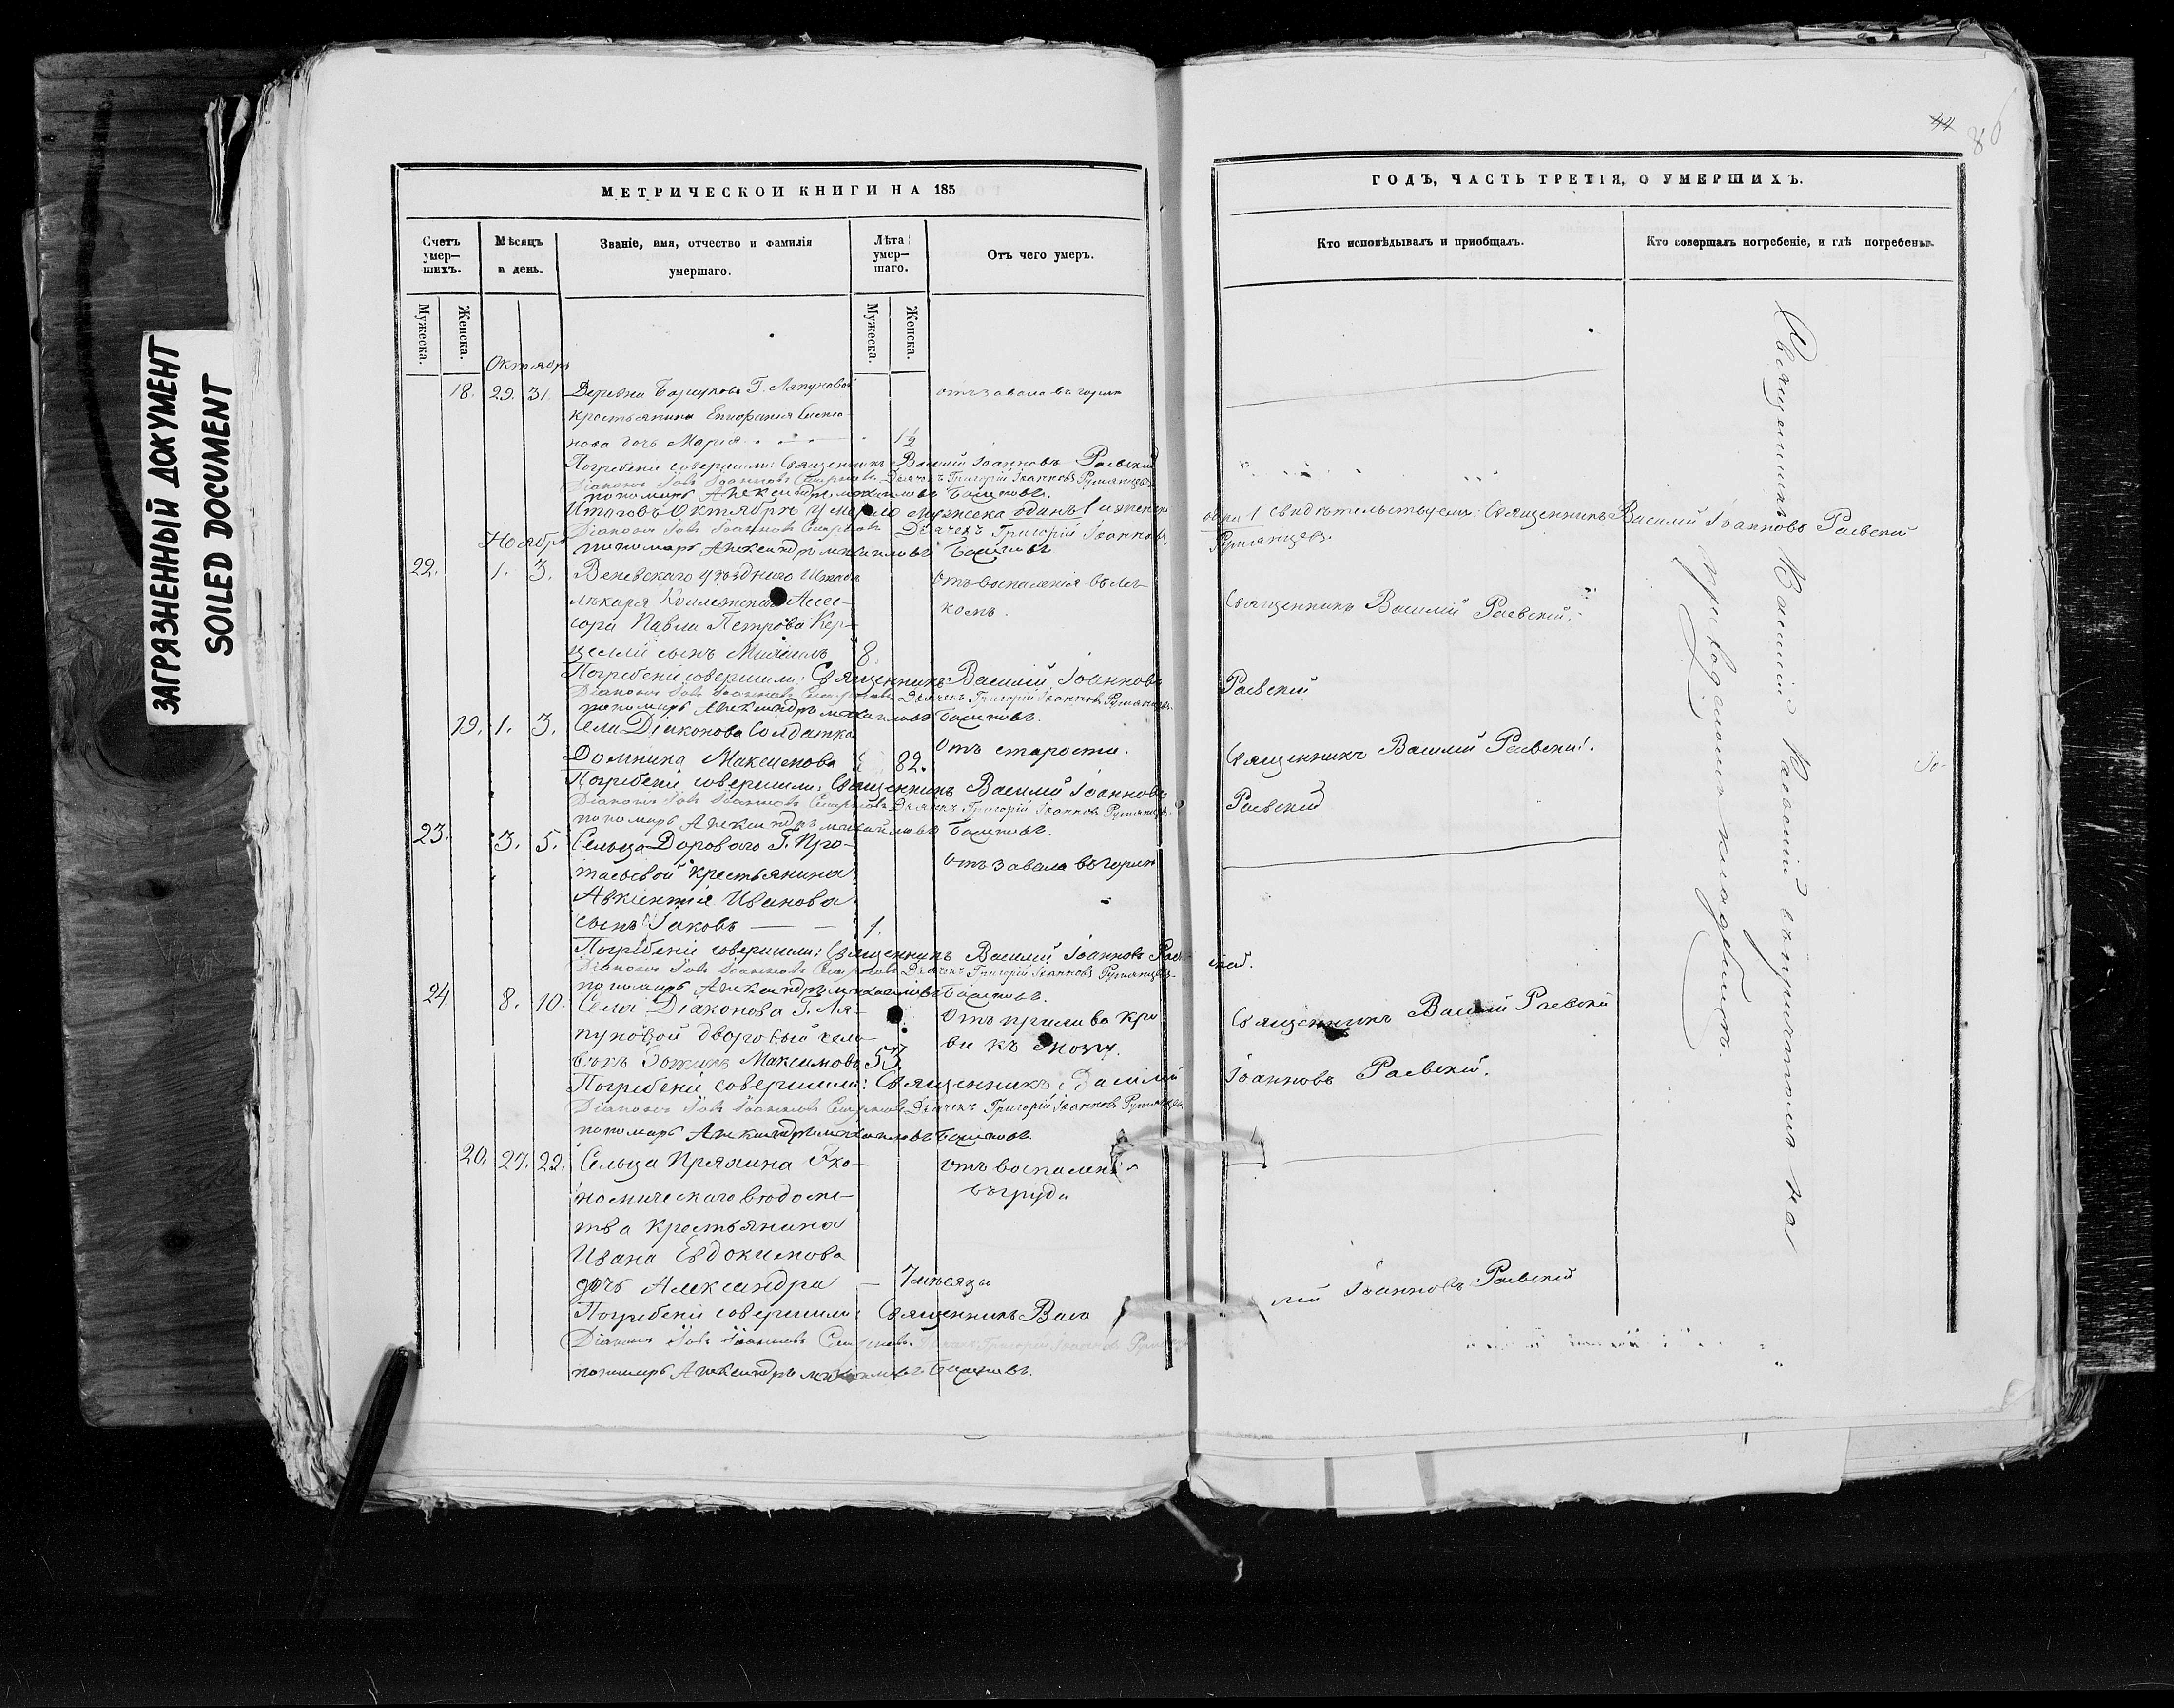 44
86
ЗАГРЯЗНЕННЫЙ ДОКУМЕНТ
SOILED DOCUMENT
МЕТРИЧЕСКОЙ КНИГИ НА 185
Счетъ умер—шихъ.
Мѣсяцъ и день.
Званіе, имя, отчество и фамилія умершаго.
Лѣта умер—шаго.
Отъ чего умеръ.
Мужеска.
Женска.
Мужеска.
Женска.
Октябрь
18. 29. 31. Деревни Г. Ляпуновой отъ завала въ горлѣ
крестьянина Епифанія
нова дочь Марія 1½
Погребеніе совершили: Священникъ Василій Іоанновъ Раевскій
Діаконъ Іовъ Іоанновъ Смирновъ Дьячекъ Григорій Іоанновъ Румянцевъ
пономарь Александръ Михайловъ
Итого въ Октябрѣ умерло мужеска одинъ 1 и женска
Діаконъ Іовъ Іоанновъ Смирновъ Дьячекъ Григорій Іоанновъ
Ноябрь
пономарь Александръ Михайловъ
22. 1. 3. Веневскаго уѣзднаго Штабъ отъ воспаленія въ лег-
лѣкаря Коллежскаго Ассес- комъ.
сора Павла Петрова Кер-
целли сынъ Михаилъ 8.
Погребеніе совершили: Священникъ Василій Іоанновъ
Діаконъ Іовъ Іоанновъ Смирновъ Дьячекъ Григорій Іоанновъ Румянцевъ
пономарь Александръ Михайловъ
19. 1. 3. Села Діаконова Солдатка
Домника Максимова 82. Отъ старости.
Погребеніе совершили: Священникъ Василій Іоанновъ
Діаконъ Іовъ Іоанновъ Смирновъ Дьячекъ Григорій Іоанновъ Румянцевъ
пономарь Александръ Михайловъ
23. 3. 5. Сельца Дороваго Г. Про-
тасьевой крестьянина Отъ завала въ горлѣ
Авксентія Иванова
сынъ Іаковъ — — 1.
Погребеніе совершили: Священникъ Василій Іоанновъ Раев-
Діаконъ Іовъ Іоанновъ Смирновъ Дьячекъ Григорій Іоанновъ Румянцевъ
пономарь Александръ Михайловъ
24. 8. 10. Села Діаконова Г. Ля- Отъ прилива кро
пуновой дворовый чело- ви къ мозгу.
вѣкъ Максимовъ 53.
Погребеніе совершили: Священникъ Василій
Діаконъ Іовъ Іоанновъ Смирновъ Дьячекъ Григорій Іоанновъ Румянцевъ
пономарь Александръ Михайловъ
20. 27. 29. Сельца Эко- отъ воспаленія
номическаго вѣдомс- въ груди
тва крестьянина
Ивана Евдокимова
дочь Александра — 7 мѣсяцы
Погребеніе совершили: Священникъ Васи
Діаконъ Іовъ Іоанновъ Смирновъ Дьячекъ Григорій Іоанновъ
пономарь Александръ Михайловъ
ГОДЪ, ЧАСТЬ ТРЕТІЯ, О УМЕРШИХЪ.
Кто исповѣдывалъ и пріобщалъ.
Кто совершалъ погребеніе, и гдѣ погребены.
одна 1 свидѣтельствуемъ: Священникъ Василій Іоанновъ Раевскій
Румянцевъ.
Священникъ Василій Раевскій.
Раевскій
Священникъ Василій Раевскій.
Раевскій
скій.
Священникъ Василій Раевскій
Іоанновъ Раевскій.
лій Іоанновъ Раевскій
Священникъ Василій Раевскій съ причтомъ на
приходскомъ кладбищѣ.